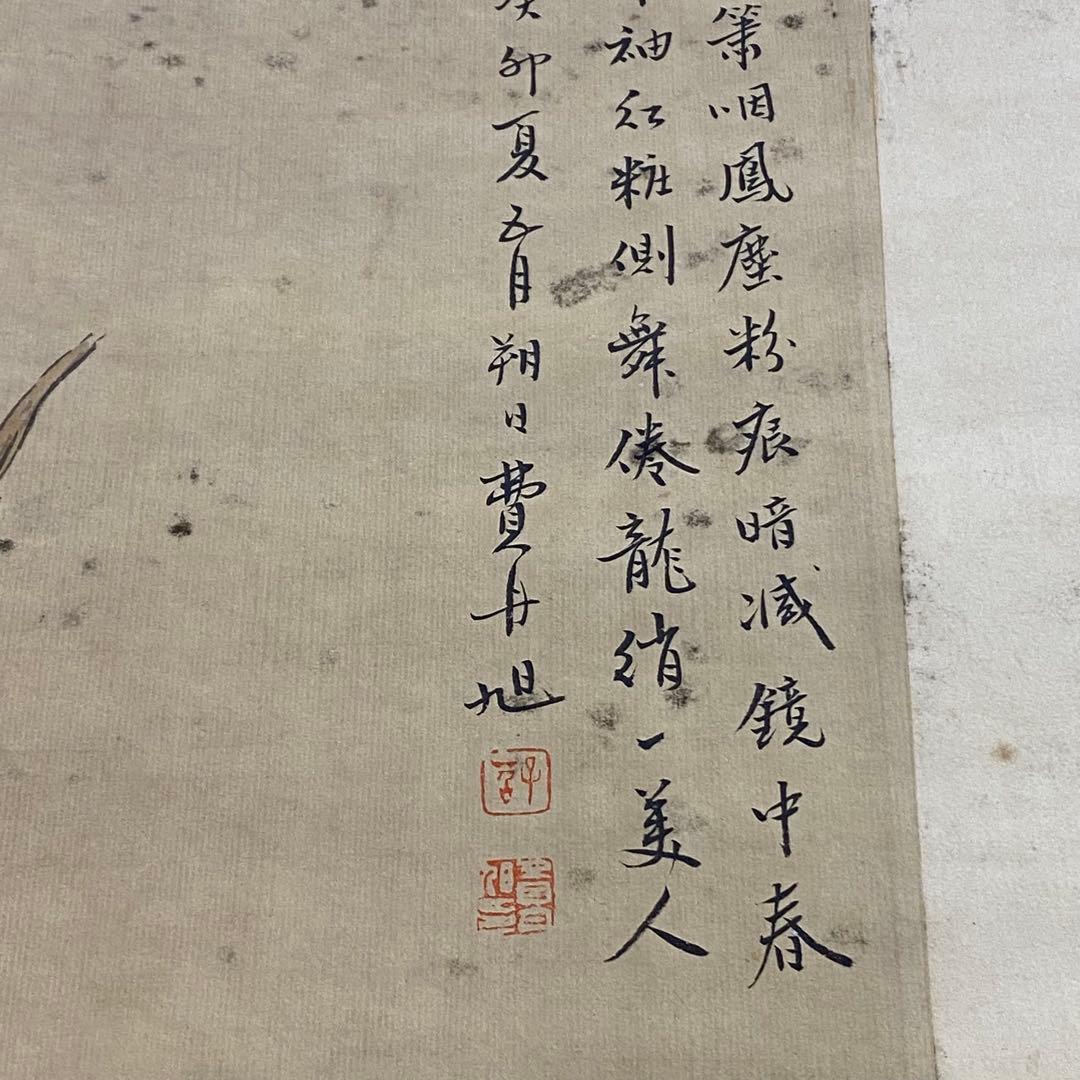 咽鳳塵粉痕暗减鏡中春
袖红粧側舞倦龍綃一美人
卯夏五月朔日費丹旭
子苕